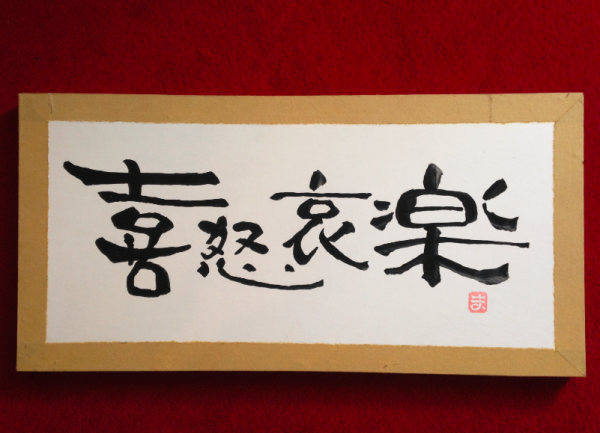 喜怒哀楽
ま